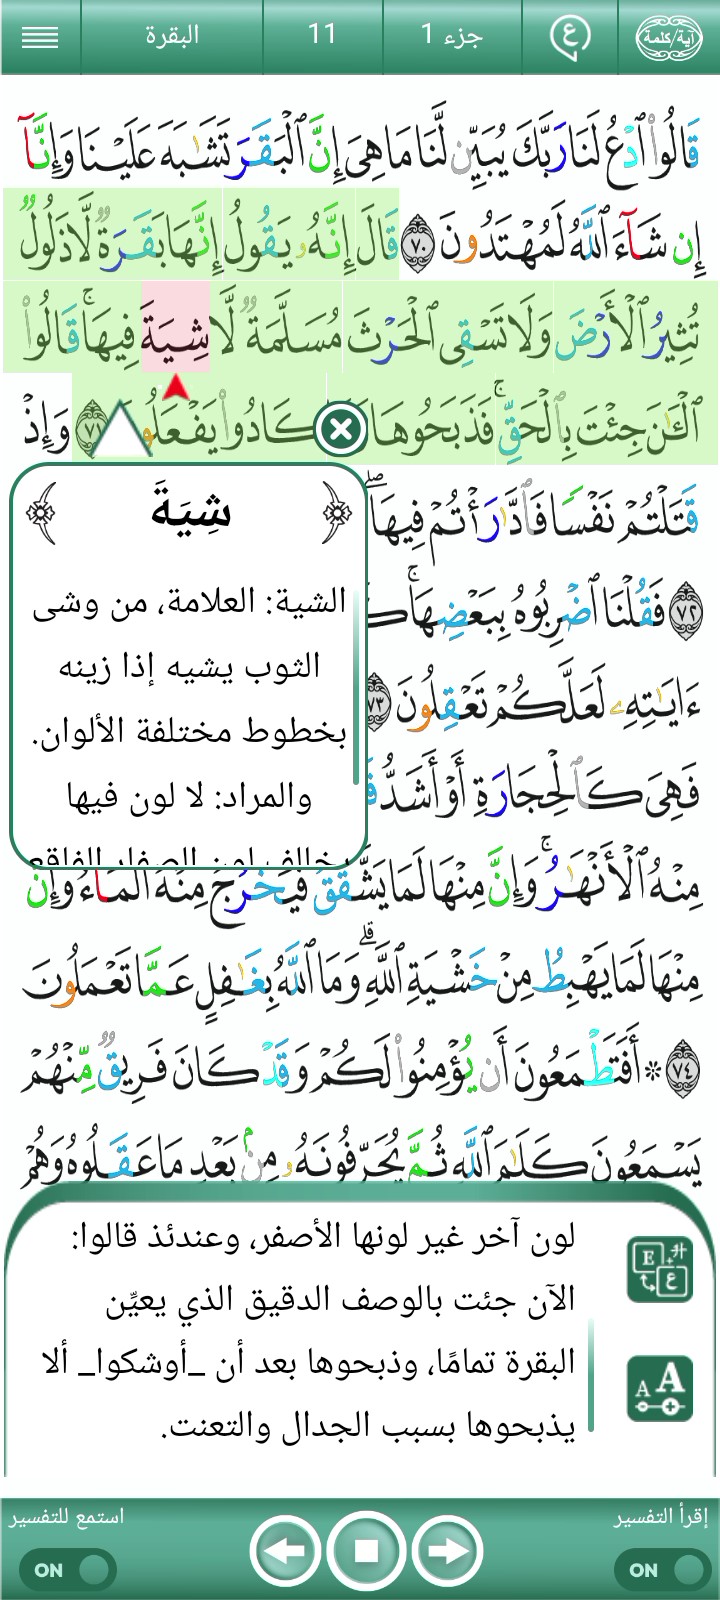 آية/كلمة
ع
جزء 1
11
البقرة
قَالُوا۟ ٱدْعُ لَنَا رَبَّكَ يُبَيِّن لَّنَا مَا هِىَ إِنَّ ٱلْبَقَرَ تَشَـٰبَهَ عَلَيْنَا وَإِنَّآ
إِن شَآءَ ٱللَّهُ لَمُهْتَدُونَ ٧٠ قَالَ إِنَّهُۥ يَقُولُ إِنَّهَا بَقَرَةٌ لَّا ذَلُولٌ
تُثِيرُ ٱلْأَرْضَ وَلَا تَسْقِى ٱلْحَرْثَ مُسَلَّمَةٌ لَّا شِيَةَ فِيهَا ۚ قَالُوا۟
ٱلْـَٔـٰنَ جِئْتَ بِٱلْحَقِّ ۚ فَذَبَحُوهَا كَادُوا۟ يَفْعَلُو ٧١ وَإِذْ
قَتَلْتُمْ نَفْسًا فَٱدَّٰرَْٰٔتُمْ فِيهَا ۖ
٧٢ فَقُلْنَا ٱضْرِبُوهُ بِبَعْضِهَا ۚ
ءَايَـٰتِهِۦ لَعَلَّكُمْ تَعْقِلُونَ ٧٣
فَهِىَ كَٱلْحِجَارَةِ أَوْ أَشَدُّ
مِنْهُ ٱلْأَنْهَـٰرُ ۚ وَإِنَّ مِنْهَا لَمَا يَشَّقَّقُ فَيَخْرُجُ مِنْهُ ٱلْمَآءُ ۚ وَإِنَّ
مِنْهَا لَمَا يَهْبِطُ مِنْ خَشْيَةِ ٱللَّهِ ۗ وَمَا ٱللَّهُ بِغَـٰفِلٍ عَمَّا تَعْمَلُونَ
٧٤ ۞ أَفَتَطْمَعُونَ أَن يُؤْمِنُوا۟ لَكُمْ وَقَدْ كَانَ فَرِيقٌ مِّنْهُمْ
يَسْمَعُونَ كَلَـٰمَ ٱللَّهِ ثُمَّ يُحَرِّفُونَهُۥ مِنۢ بَعْدِ مَا عَقَلُوهُ وَهُمْ
شِيَةَ
الشية: العلامة، من وشى
الثوب يشيه إذا زينه
بخطوط مختلفة الألوان.
والمراد: لا لون فيها
يخالف لون الصفار الفاقع
لون آخر غير لونها الأصفر، وعندئذ قالوا:
الآن جئت بالوصف الدقيق الذي يعيِّن
البقرة تمامًا، وذبحوها بعد أن _أوشكوا_ ألا
يذبحوها بسبب الجدال والتعنت.
E ع
A A
إقرأ التفسير
استمع للتفسير
ON
ON